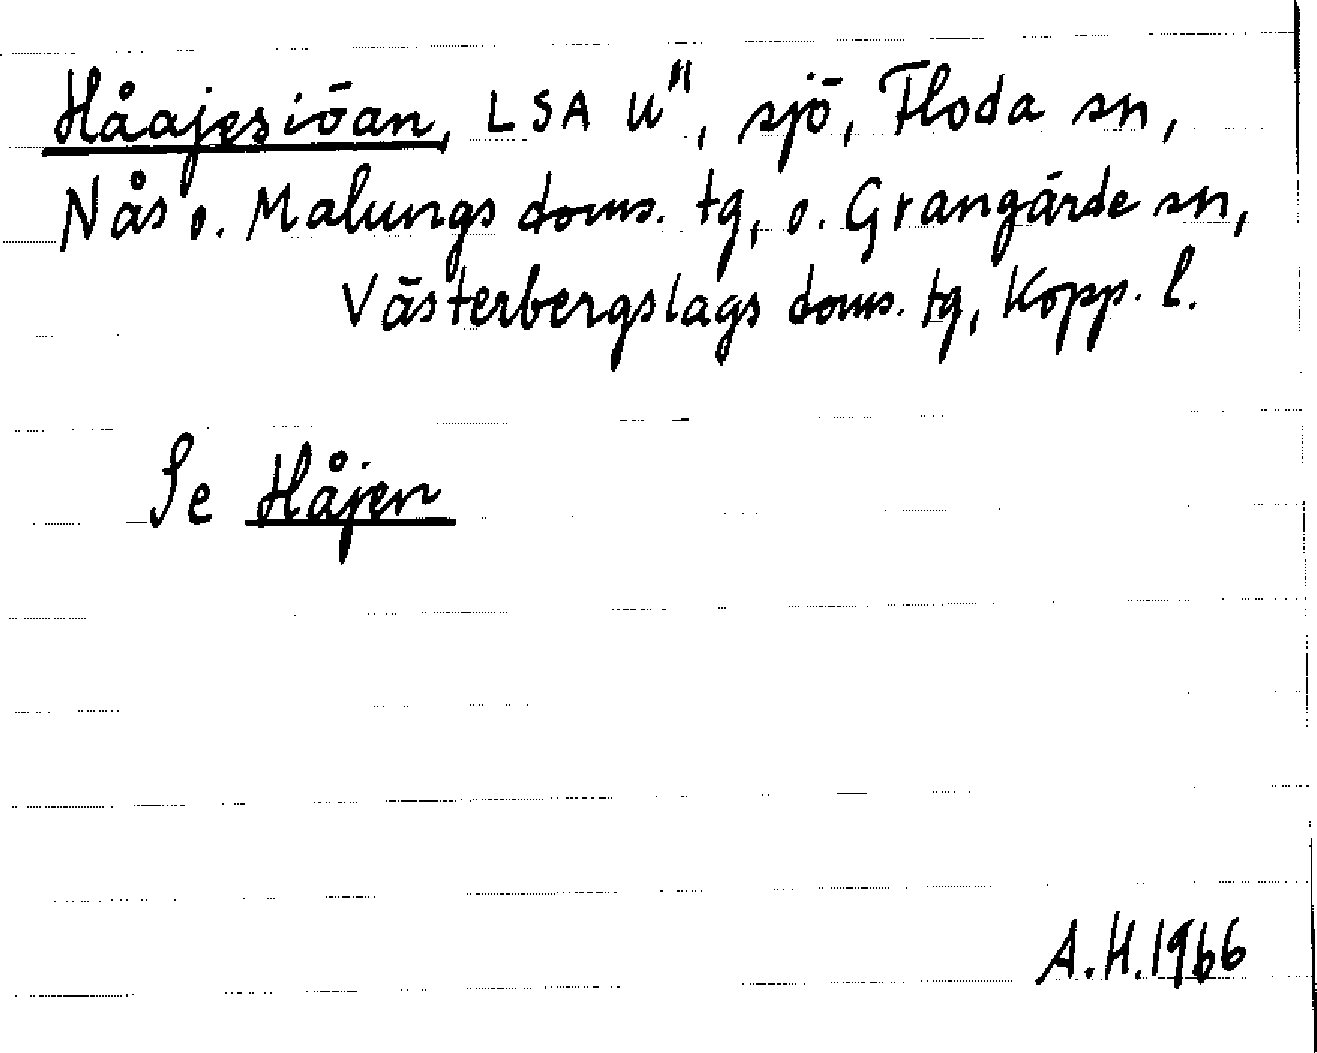 Håajesiöan, LSA U", sjö, Floda sn,
Nås o. Malungs doms. tg, o. Grangärde sn,
Västerbergslags doms. tg, Kopp. l.
Se Håjen
A.H.1966